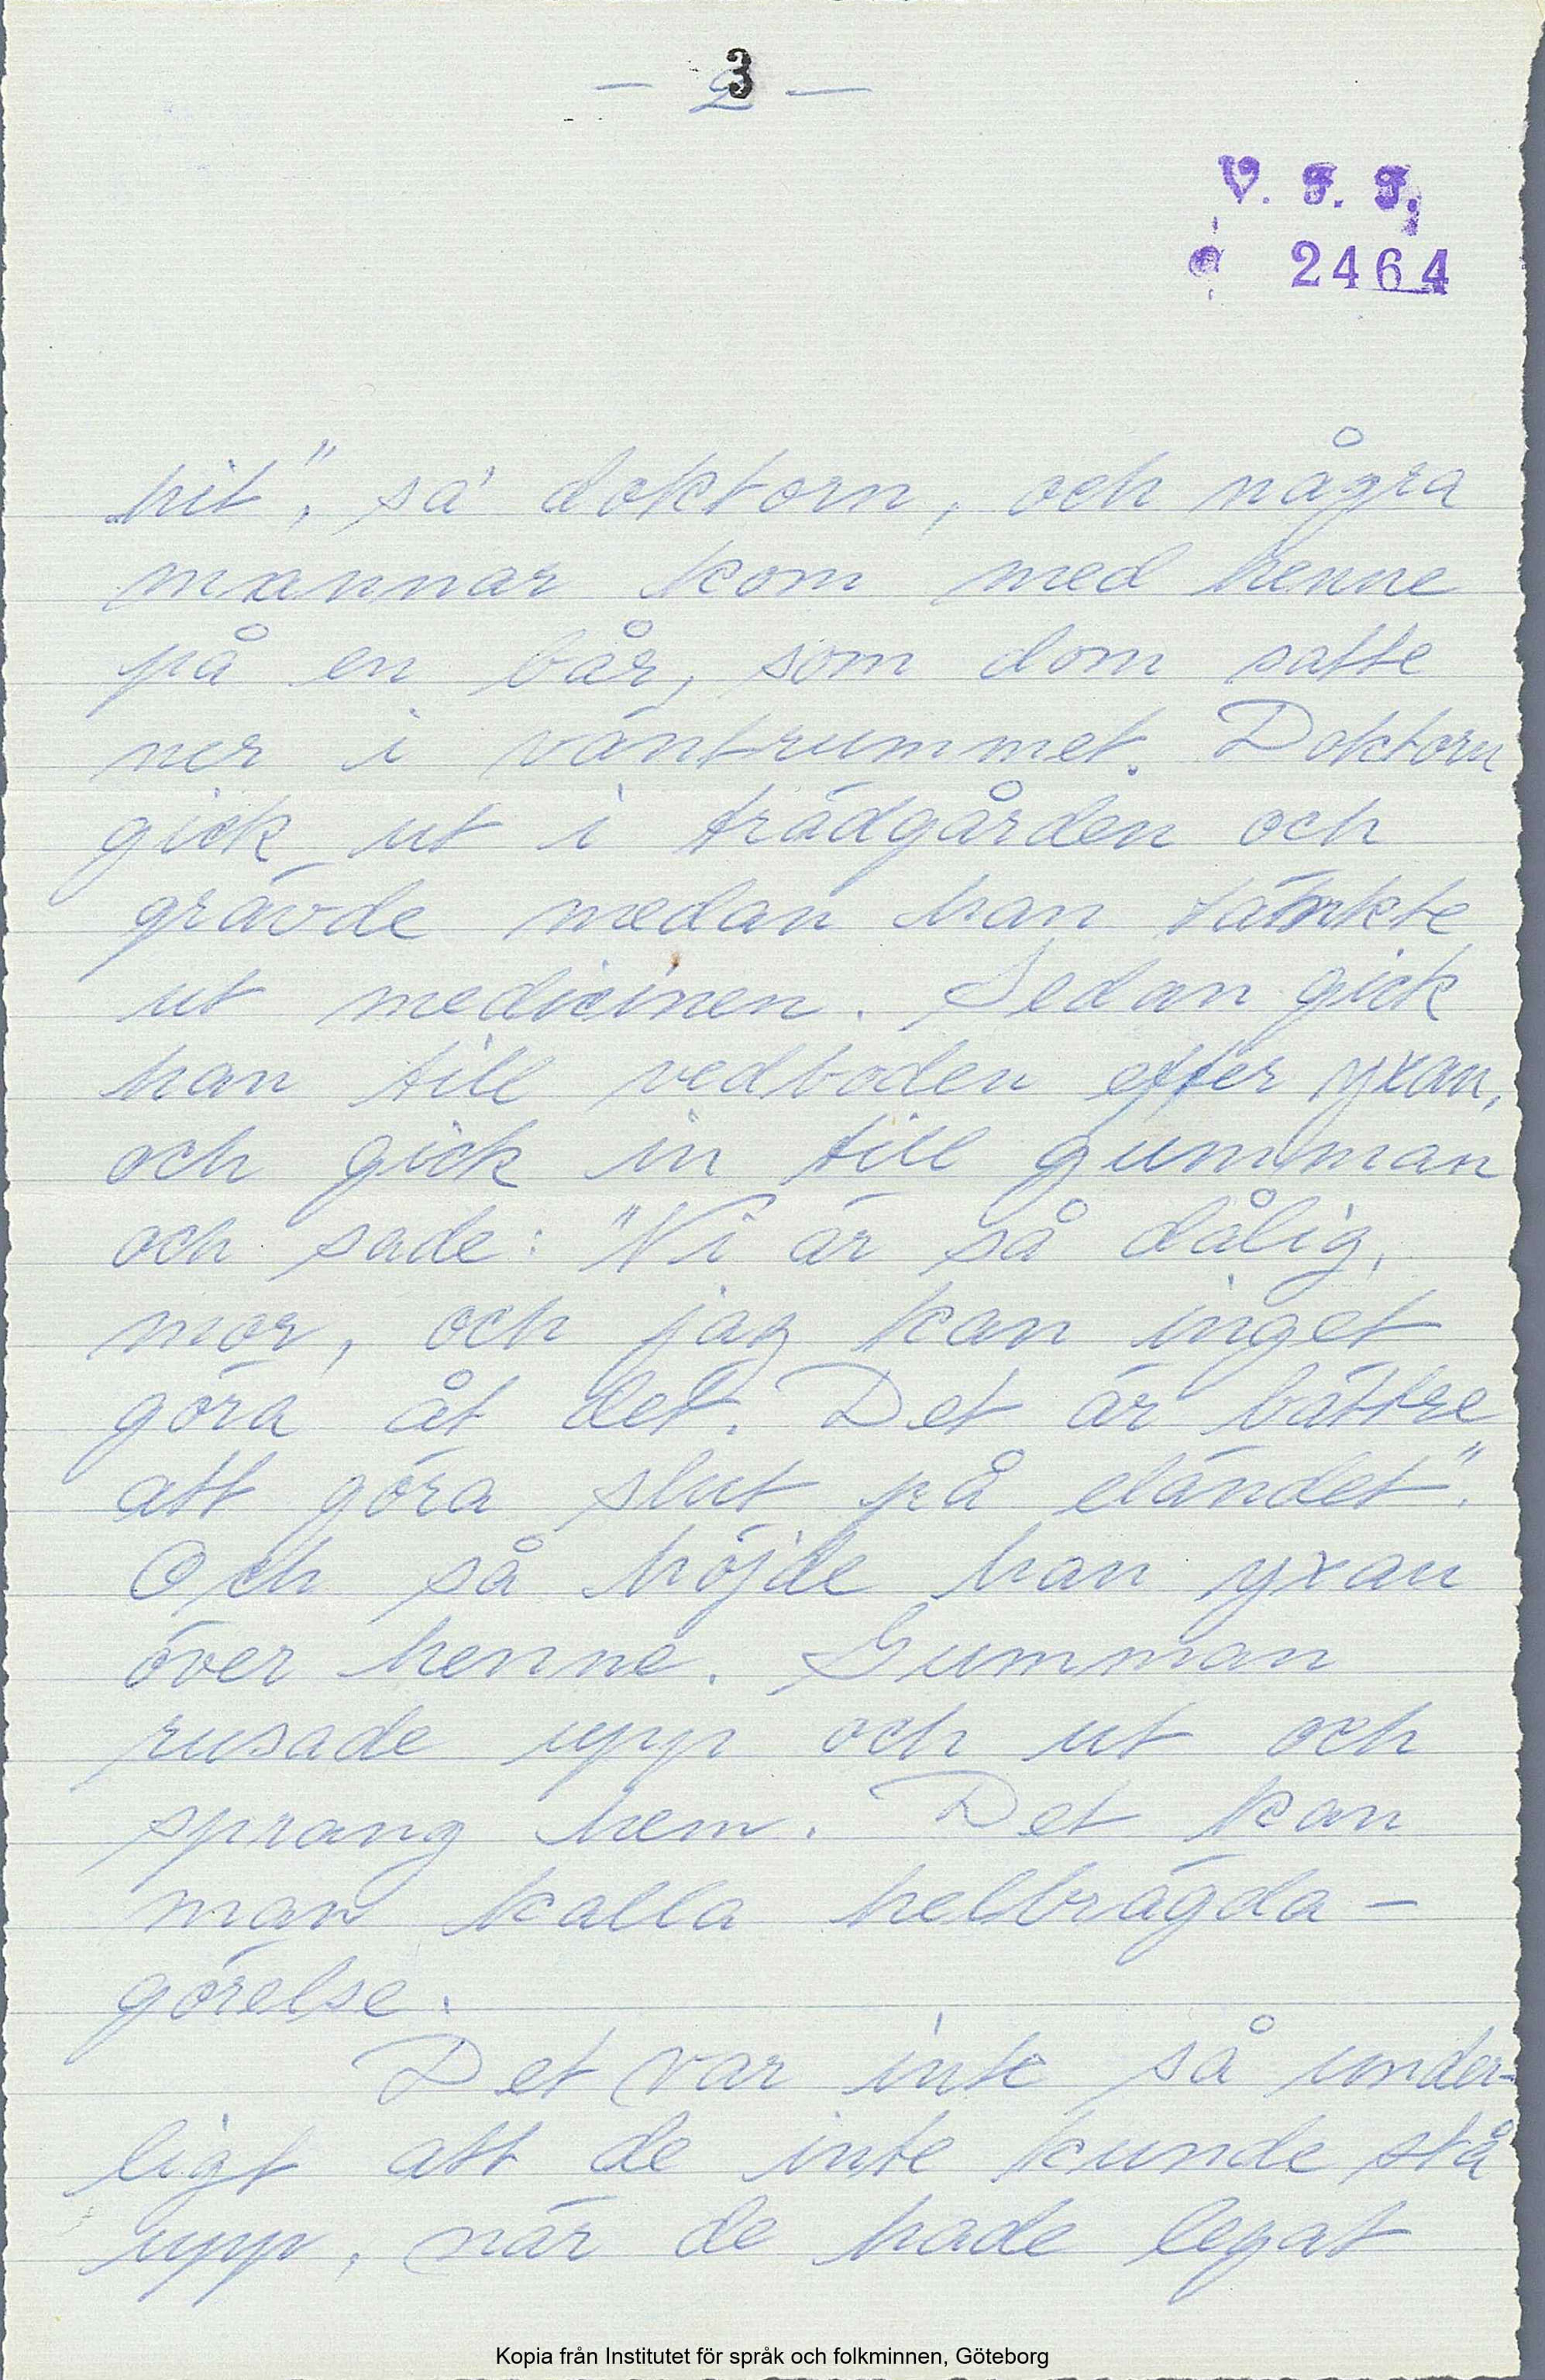 - 2 -
3
V. F. F.
2464
hit", sa' doktorn, och några
mannar kom med henne
på en bår, som dom satte
ner i väntrummet. Doktorn
gick ut i trädgården och
grävde medan han tänkte
ut medicinen. Sedan gick
han till vedboden efter yxan,
och gick in till gumman
och sade: "Ni är så dålig,
mor, och jag kan inget
göra åt det. Det är bättre
att göra slut på eländet".
Och så höjde han yxan
över henne. Gumman
rusade upp och ut och
sprang hem. Det kan
man kalla helbrägda-
görelse.
Det var inte så under-
ligt att de inte kunde stå
upp, när de hade legat
Kopia från Institutet för språk och folkminnen, Göteborg